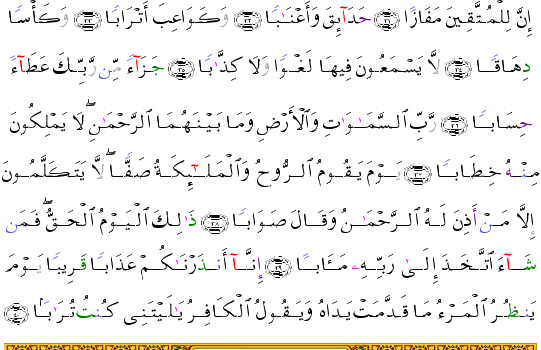 إِنَّ لِلْمُتَّقِينَ مَفَازًا ۝٣١ حَدَآئِقَ وَأَعْنَـٰبًا ۝٣٢ وَكَوَاعِبَ أَتْرَابًا ۝٣٣ وَكَأْسًا
دِهَاقًا ۝٣٤ لَّا يَسْمَعُونَ فِيهَا لَغْوًا وَلَا كِذَّٰبًا ۝٣٥ جَزَآءً مِّن رَّبِّكَ عَطَآءً
حِسَابًا ۝٣٦ رَّبِّ ٱلسَّمَـٰوَٰتِ وَٱلْأَرْضِ وَمَا بَيْنَهُمَا ٱلرَّحْمَـٰنِ ۖ لَا يَمْلِكُونَ
مِنْهُ خِطَابًا ۝٣٧ يَوْمَ يَقُومُ ٱلرُّوحُ وَٱلْمَلَـٰٓئِكَةُ صَفًّا ۖ لَّا يَتَكَلَّمُونَ
إِلَّا مَنْ أَذِنَ لَهُ ٱلرَّحْمَـٰنُ وَقَالَ صَوَابًا ۝٣٨ ذَٰلِكَ ٱلْيَوْمُ ٱلْحَقُّ ۖ فَمَن
شَآءَ ٱتَّخَذَ إِلَىٰ رَبِّهِۦ مَـَٔابًا ۝٣٩ إِنَّآ أَنذَرْنَـٰكُمْ عَذَابًا قَرِيبًا يَوْمَ
يَنظُرُ ٱلْمَرْءُ مَا قَدَّمَتْ يَدَاهُ وَيَقُولُ ٱلْكَافِرُ يَـٰلَيْتَنِى كُنتُ تُرَٰبًۢا ۝٤٠